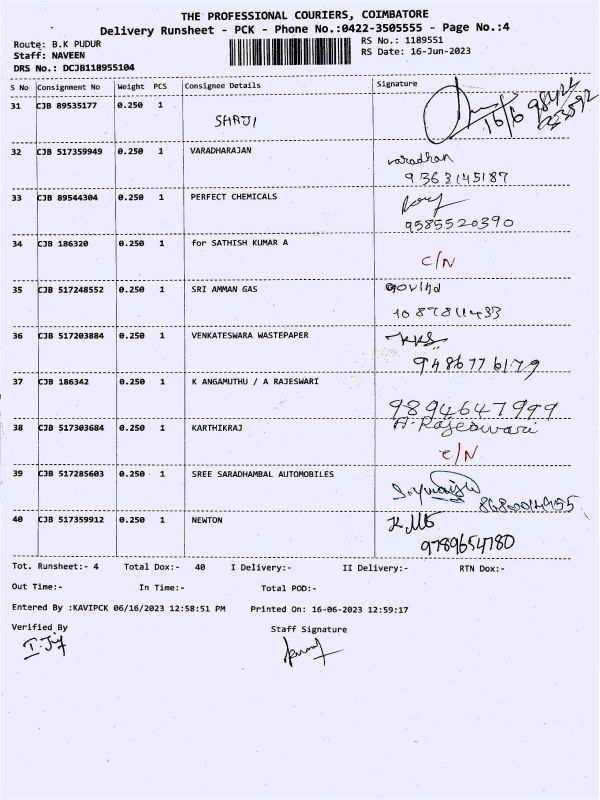 THE PROFESSIONAL COURIERS, COIMBATORE
Delivery Runsheet - PCK - Phone No.:0422-3505555 - Page No.:4
Route: B.K PUDUR
RS No.: 1189551
Staff: NAVEEN
RS Date: 16-Jun-2023
DRS No.: DCJB118955104
S No Consignment No Weight PCS Consignee Details Signature
31 CJB 89535177 0.250 1 SHAJI 16/6
32 CJB 517359949 0.250 1 VARADHARAJAN varadhan
9363145187
33 CJB 89544304 0.250 1 PERFECT CHEMICALS
9585520390
34 CJB 186320 0.250 1 for SATHISH KUMAR A
C/N
35 CJB 517248552 0.250 1 SRI AMMAN GAS govind
36 CJB 517203884 0.250 1 VENKATESWARA WASTEPAPER KKS
9486776179
37 CJB 186342 0.250 1 K ANGAMUTHU / A RAJESWARI
9894647999
38 CJB 517303684 0.250 1 KARTHIKRAJ A. Rajeswari
C/N
39 CJB 517285603 0.250 1 SREE SARADHAMBAL AUTOMOBILES
40 CJB 517359912 0.250 1 NEWTON
9789654780
Tot. Runsheet:- 4 Total Dox:- 40 I Delivery:- II Delivery:- RTN Dox:-
Out Time:- In Time:- Total POD:-
Entered By :KAVIPCK 06/16/2023 12:58:51 PM Printed On: 16-06-2023 12:59:17
Verified By Staff Signature